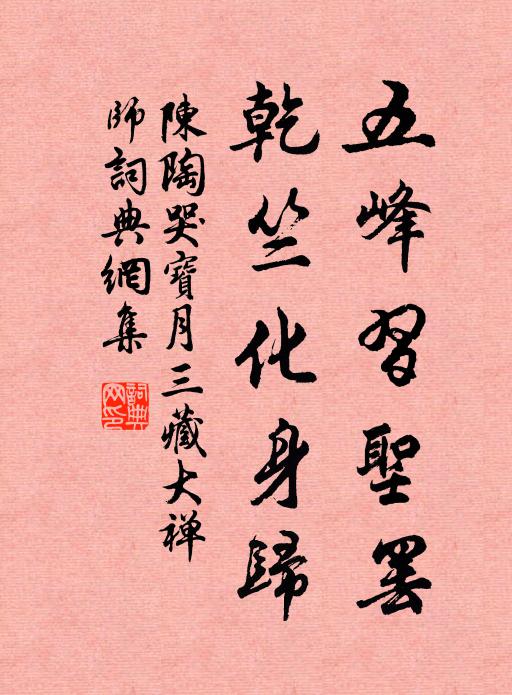 五峰習聖罢
乾竺化身歸
陳陶哭寶月三藏大禅
師詞典網集
詞典
网印